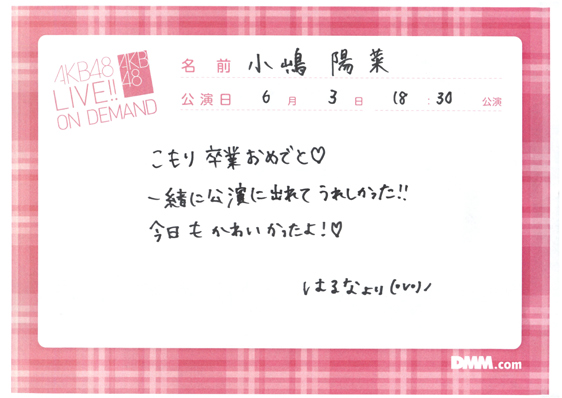 AKB48
LIVE!!
ON DEMAND
AKB
48
名前 小嶋 陽菜
公演日 6月 3日 18:30 公演
こもり 卒業おめでと♡
一緒に公演に出れて うれしかった!!
今日も かわいかったよ!♡
はるなより(•v•)ノ
DMM.com